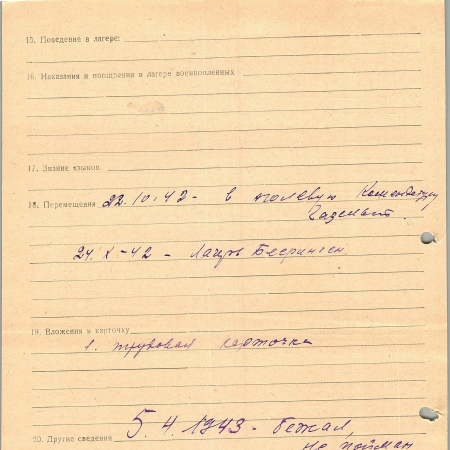 15. Поведение в лагере:
16. Наказания и поощрения в лагере военнопленных
17. Знание языков
18. Перемещения 22.10.42 - в полевую Комендатуру
24. X - 42 - Лагерь Беверинген
19. Вложения в карточку
1. трудовая карточка
20. Другие сведения 5.4.1943 - бежал,
не пойман